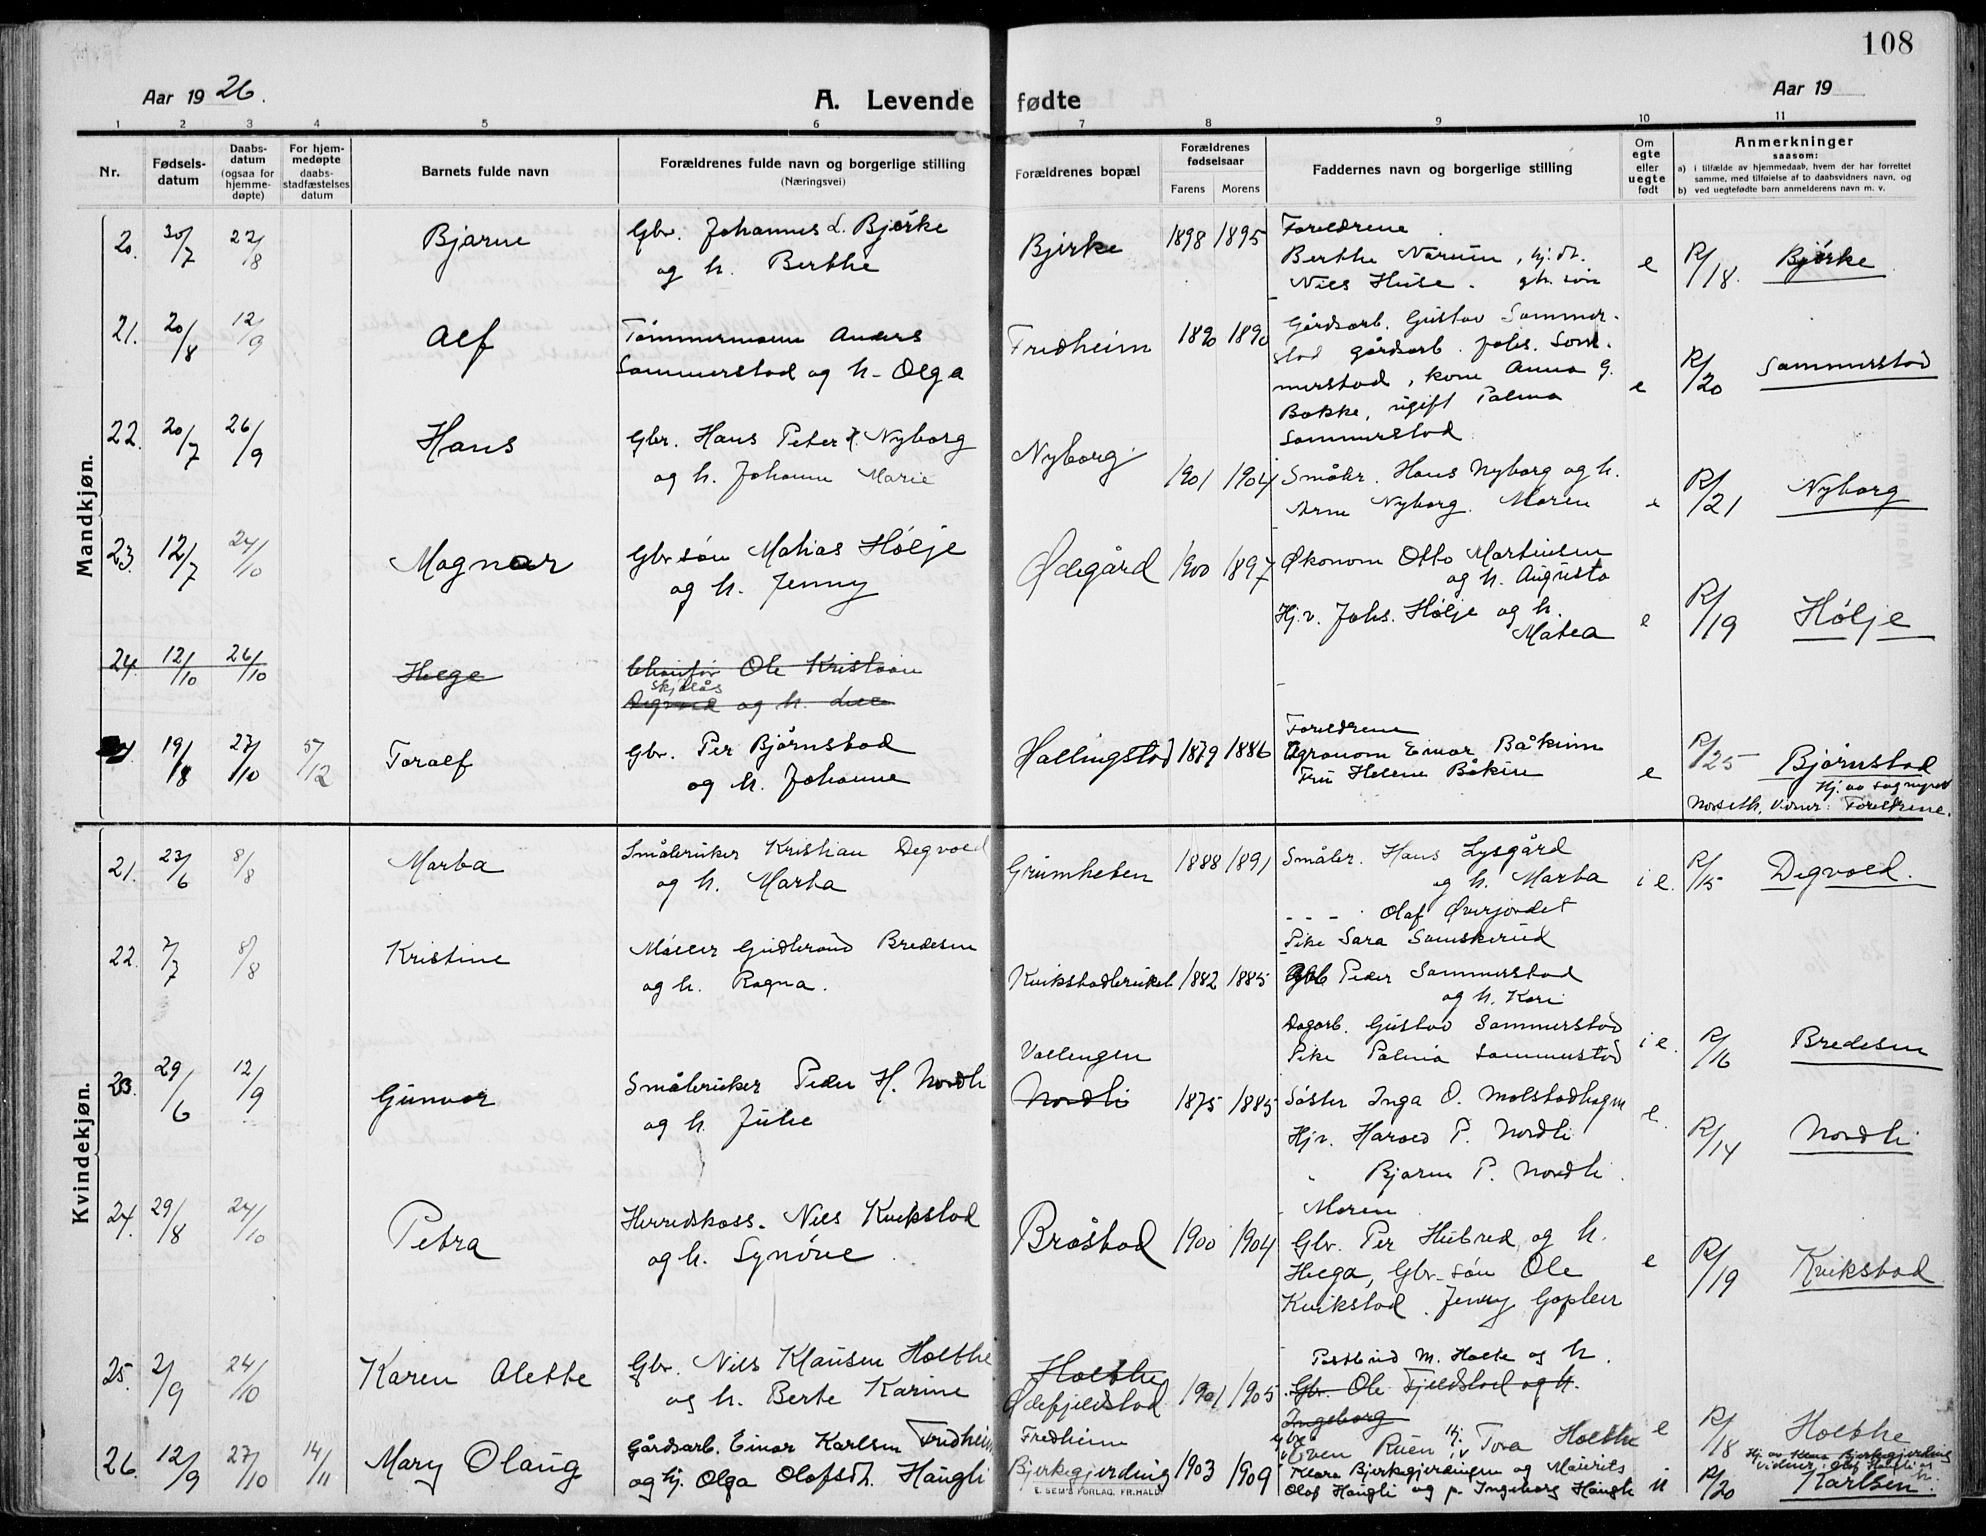 108
Aar 1926.
A. Levende fødte
Aar 19
1 2 3 4 5 6 7 8 9 10 11
Nr.
Fødsels-
datum
Daabs-
datum
(ogsaa for
hjemme-
døpte)
For hjem-
medøpte
daabs-
stadfæstelses
datum
Barnets fulde navn
Forældrenes fulde navn og borgerlige stilling
(Næringsvei)
Forældrenes bopæl
Forældrenes
fødselsaar
Farens Morens
Faddernes navn og borgerlige stilling
Om
egte
eller
uegte
født
Anmerkninger
saasom:
a) i tilfælde av hjemmedaab, hvem der har forrettet
samme, med tilføielse af to daabsvidners navn, og
b) ved uegtefødte barn anmelderens navn m. v.
Mandkjøn.
20. 30/7 22/8 Bjarne
Gbr. Johannes L. Bjørke
og h. Berthe
Bjørke 1898 1895
Foreldrene
Berthe Narum, hj. dt.
Nils Huse. gb. søn
e R/18. Bjørke
21. 20/8 12/9 Alf
Tømmermann Anders
Sammerstad og h. Olga
Fredheim 1890 1890
Gårdsarb. Gustav Sammer-
stad gårdsarb. Johs. Sam-
merstad, kone Anna G.
Bakke, ugift Palma
Sammerstad
e R/20 Sammerstad
22. 20/7 26/9 Hans
Gbr. Hans Peter H. Nyborg
og h. Johanne Marie
Nyborg 1901 1904
Småbr. Hans Nyborg og h.
Arne Nyborg. Moren
e R/21 Nyborg
23. 12/7 24/10 Magnar
Gbr søn Mathias Hølje
og h. Jenny
Ødegård 1900 1897
Økonom Otto Martinsen
og h. Augusta
Hj. v. Johs. Hølje og h.
Matea
e R/19 Hølje
24. 12/10 26/10 Helge
Chauffør Ole Kristian
Skjelås
Degvold og h.
24 19/8 27/10 5/12 Toralf
Gbr. Per Bjørnstad
og h. Johanne
Hallingstad 1879 1886
Foreldrene
Agronom Einar Båkinn
Fru Helene Båkin
e R/25 Bjørnstad
Hj. av sogneprest
Norseth. Vidner: Foreldrene.
Kvindekjøn.
21. 23/6 8/8 Marta
Småbruker Kristian Degvold
og h. Marta
Grimheten 1888 1891
Småbr. Hans Lysgård
og h. Marta
- - - Olaf Øverjordet
Pike Sara Samskerud
i e. R/15 Degvold.
22. 7/7 8/8 Kristine
Møller Gudbrand Bredesen
og h. Ragna.
Kvikstadbruket 1882 1885
Gbr Peder Sammerstad
og h. Kari
Dagarb. Gustav Sammerstad
Pike Palma Sammerstad
i e. R/16 Bredesen
23. 29/6 12/9 Gunvor
Småbruker Peder H. Nordli
og h. Julie
Vollengen
Nordli 1875 1885
Søster Inga O. Molstadhagen
Hjv. Harald P. Nordli
" Bjarne P. Nordli
Moren
e. R/14 Nordli
24. 29/8 24/10 Petra
Herredskass. Nils Kvikstad
og h. Synøve
Bråstad 1900 1904
Gbr. Per Hubred og h.
Helga, Gbr. søn Ole
Kvikstad. Jenny Goplen
e R/19 Kvikstad
25. 2/9 24/10 Karen Alette
Gbr. Nils Klausen Holthe
og h. Berte Karine
Holthe
Ødefjeldstad 1901 1905
Postbud M. Holte og h.
Gbr. Ole Fjeldstad og h.
Ingeborg
Even Ruen Hj. v. Tora Holthe
e R/18 Holthe
26. 12/9 27/10 14/11 Mary Olaug
Gårdsarb. Einar Karlsen Fredheim
og hj. Olga Olafsdt. Haugli
Fredheim
Bjerkegjerding 1903 1909
Klara Bjerkegjerdingen og Maurits
Olaf Haugli og p. Ingeborg Haugli
u R/20 Karlsen
Hj. av Klara Bjerkegjerding
Vidner: Olaf Haugli og h.
E. SEM'S FORLAG, FR.HALD